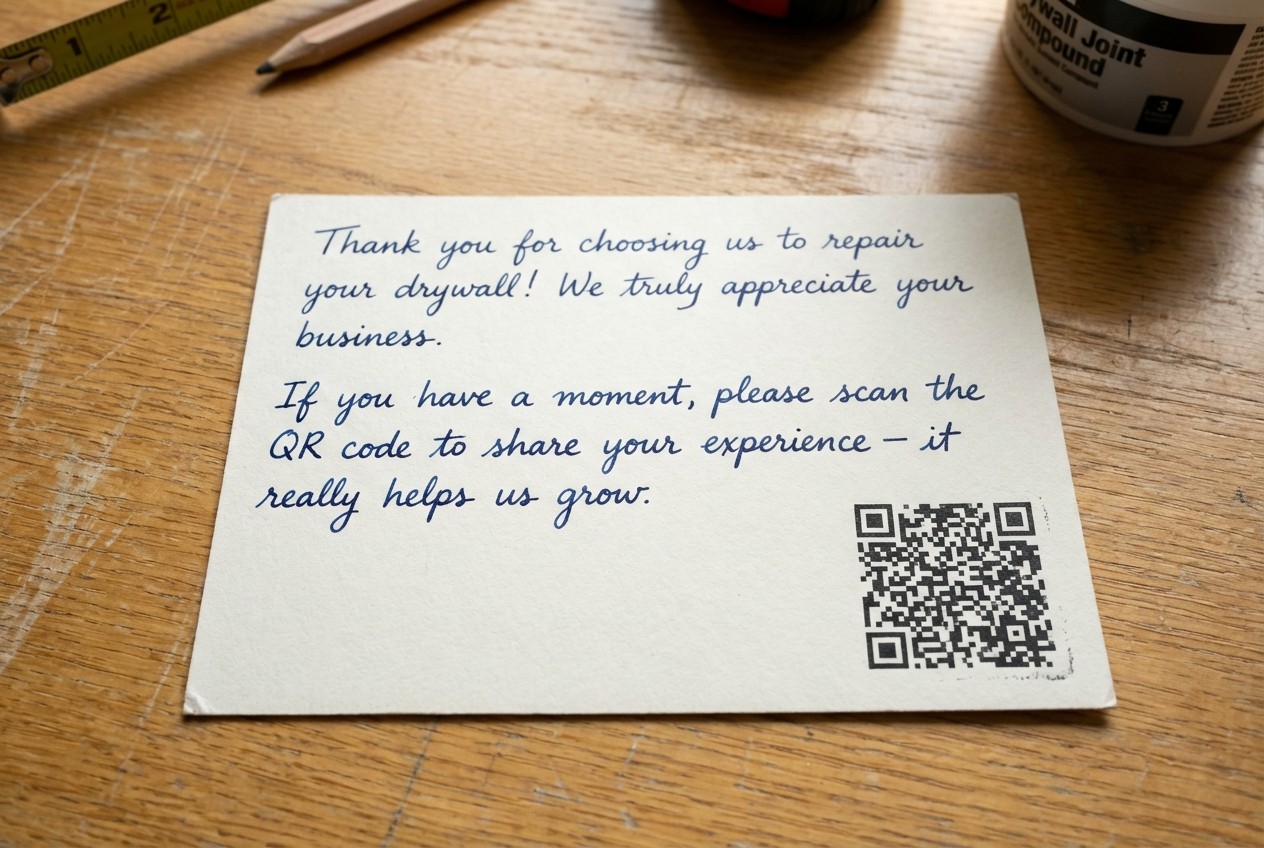 1
2
ywall Joint
ompound
3
Thank you for choosing us to repair
your drywall! We truly appreciate your
business.
If you have a moment, please scan the
QR code to share your experience – it
really helps us grow.